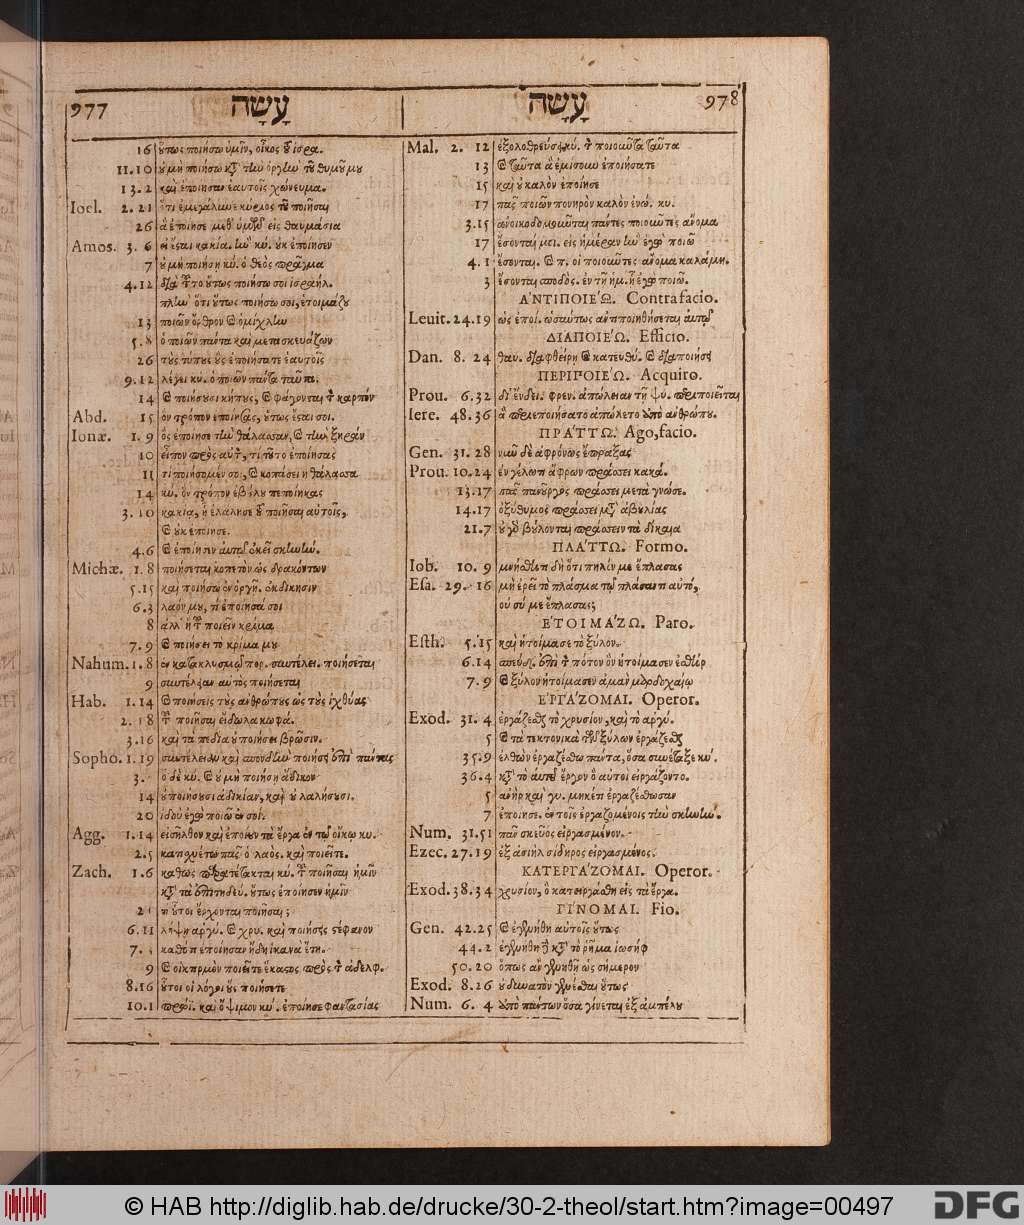 977 עָשָׂה
16 οὕτως ποιήσω ὑμῖν, οἶκος τοῦ ἰσρα.
11.10 οὐ μὴ ποιήσω κατὰ τὴν ὀργὴν τοῦ θυμοῦ μου
13.2 καὶ ἐποίησαν ἑαυτοῖς χώνευμα.
Ioel. 2.21 ὅτι ἐμεγάλυνε κύριος τοῦ ποιῆσαι
26 ἃ ἐποίησε μεθ' ὑμῶν εἰς θαυμάσια
Amos. 3.6 εἰ ἔσται κακία. ἣν κύ. οὐκ ἐποίησεν
7 οὐ μὴ ποιήσῃ κύ. ὁ θεὸς πρᾶγμα
4.12 διὰ τοῦτο οὕτως ποιήσω σοι ἰσραήλ.
πλὴν ὅτι οὕτως ποιήσω σοι, ἑτοιμάζου
13 ποιῶν ὄρθρον καὶ ὁμίχλην
5.8 ὁ ποιῶν πάντα καὶ μετασκευάζων
26 τοὺς τύπους οὓς ἐποιήσατε ἑαυτοῖς
9.12 λέγει κύ. ὁ ποιῶν πάντα ταῦτα.
14 καὶ ποιήσουσι κήπους, καὶ φάγονται τὸν καρπὸν
Abd. 15 ὃν τρόπον ἐποίησας, οὕτως ἔσται σοι.
Ionæ. 1.9 ὃς ἐποίησε τὴν θάλασσαν, καὶ τὴν ξηρὰν
10 εἶπον πρὸς αὐτὸν, τί τοῦτο ἐποίησας
11 τί ποιήσομέν σοι, καὶ κοπάσει ἡ θάλασσα
14 κύ. ὃν τρόπον ἐβούλου πεποίηκας
3.10 κακίᾳ, ᾗ ἐλάλησε τοῦ ποιῆσαι αὐτοῖς,
καὶ οὐκ ἐποίησε.
4.6 καὶ ἐποίησεν αὐτῷ ἐκεῖ σκηνήν.
Michæ. 1.8 ποιήσεται κοπετὸν ὡς δρακόντων
5.15 καὶ ποιήσω ἐν ὀργῇ. ἐκδίκησιν
6.3 λαόν μου, τί ἐποίησά σοι
8 ἀλλ' ἢ τοῦ ποιεῖν κρίμα
7.9 καὶ ποιήσει τὸ κρίμα μου
Nahum. 1.8 ἐν κατακλυσμῷ πορ. συντέλει. ποιήσεται
9 συντέλειαν αὐτὸς ποιήσεται
Hab. 1.14 καὶ ποιήσεις τοὺς ἀνθρώπους ὡς τοὺς ἰχθύας
2.18 τοῦ ποιῆσαι εἴδωλα κωφά.
3.16 καὶ τὰ πεδία οὐ ποιήσει βρῶσιν.
Sopho. 1.19 συντέλειαν καὶ σπουδὴν ποιήσει ἐπὶ πάντας
3. ὁ δὲ κύ. καὶ οὐ μὴ ποιήσῃ ἄδικον
14 οὐ ποιήσουσι ἀδικίαν, καὶ οὐ λαλήσουσι.
20 ἰδοὺ ἐγὼ ποιῶ ἐν σοί.
Agg. 1.14 εἰσῆλθον καὶ ἐποίουν τὰ ἔργα ἐν τῷ οἴκῳ κυ.
2.5 κατισχυέτω πᾶς ὁ λαὸς. καὶ ποιεῖτε.
Zach. 1.6 καθὼς παρατέτακται κύ. τοῦ ποιῆσαι ἡμῖν
κατὰ τὰ ἐπιτηδεύ. οὕτως ἐποίησεν ἡμῖν
21 τί οὗτοι ἔρχονται ποιῆσαι;
6.11 λήψῃ ἀργύ. καὶ χρυ. καὶ ποιήσεις στέφανον
7. καθότι ἐποίησαν ἤδη ἱκανὰ ἔτη.
9 καὶ οἰκτιρμὸν ποιεῖτε ἕκαστος πρὸς τὸν ἀδελφ.
8.16 οὗτοι οἱ λόγοι οὓς ποιήσετε
10.1 πρώϊ. καὶ ὄψιμον κύ. ἐποίησε φαντασίας
עָשָׂה 978
Mal. 2.12 ἐξολοθρεύσει κύ. τὸν ποιοῦντα ταῦτα
13 καὶ ταῦτα ἃ ἐμίσουν ἐποιήσατε
15 καὶ οὐ καλὸν ἐποίησε
17 πᾶς ποιῶν πονηρὸν καλὸν ἐνώ. κυ.
3.15 ἀνοικοδομοῦνται πάντες ποιοῦντες ἄνομα
17 ἔσονταί μοι. εἰς ἡμέραν ἣν ἐγὼ ποιῶ
4.1 ἔσονται. καὶ π. οἱ ποιοῦντες ἄνομα καλάμη.
3 ἔσονται σποδὸς. ἐν τῇ ἡμ. ᾗ ἐγὼ ποιῶ.
ΑΝΤΙΠΟΙΕΩ. Contrafacio.
Leuit. 24.19 ὡς ἐποί. ὡσαύτως ἀντιποιηθήσεται αὐτῷ
ΔΙΑΠΟΙΕΩ. Efficio.
Dan. 8.24 θαυ. διαφθείρῃ καὶ κατευθύ. καὶ διαποιήσει
ΠΕΡΙΠΟΙΕΩ. Acquiro.
Prou. 6.32 δι' ἔνδει. φρεν. ἀπώλειαν τῇ ψυ. περιποιεῖται
Iere. 48.36 ἃ περιεποιήσατο ἀπώλετο ὑπὸ ἀνθρώπου.
ΠΡΑΤΤΩ. Ago, facio.
Gen. 31.28 νῦν δὲ ἀφρόνως ἔπραξας
Prou. 10.24 ἐν γέλωτι ἄφρων πράσσει κακά.
13.17 πᾶς πανοῦργος πράσσει μετὰ γνώσε.
14.17 ὀξύθυμος πράσσει μετ' ἀβουλίας
21.7 οὐ γὰρ βούλονται πράσσειν τὰ δίκαια
ΠΛΑΤΤΩ. Formo.
Iob. 10.9 μνήσθητι δὴ ὅτι πηλόν με ἔπλασας
Esa. 29.16 μὴ ἐρεῖ τὸ πλάσμα τῷ πλάσαντι αὐτό,
οὐ σύ με ἔπλασας;
ΕΤΟΙΜΑΖΩ. Paro.
Esth. 5.15 καὶ ἡτοίμασε τὸ ξύλον.
6.14 σπεύσ. ἐπὶ τὸν πότον ὃν ἡτοίμασεν ἐσθὴρ
7.9 καὶ ξύλον ἡτοίμασεν ἀμὰν μαρδοχαίῳ
ΕΡΓΑΖΟΜΑΙ. Operor.
Exod. 31.4 ἐργάζεσθαι τὸ χρυσίον, καὶ τὸ ἀργύ.
5 καὶ τὰ τεκτονικὰ τῶν ξύλων ἐργάζεσθαι
35.9 ἐλθὼν ἐργαζέσθω πάντα, ὅσα συνέταξε κύ.
36.4 κατὰ τὸ αὐτοῦ ἔργον ὃ αὐτοὶ εἰργάζοντο.
5 ἀνὴρ καὶ γυ. μηκέτι ἐργαζέσθωσαν
7 ἐποίησε. ἐν τοῖς ἐργαζομένοις τὴν σκηνήν.
Num. 31.51 πᾶν σκεῦος εἰργασμένον.
Ezec. 27.19 ἐξ ἀσιὴλ σίδηρος εἰργασμένος.
ΚΑΤΕΡΓΑΖΟΜΑΙ. Operor.
Exod. 38.34 χρυσίον, ὃ κατειργάσθη εἰς τὰ ἔργα.
ΓΙΝΟΜΑΙ. Fio.
Gen. 42.25 καὶ ἐγενήθη αὐτοῖς οὕτως
44.2 ἐγενήθη δὲ κατὰ τὸ ῥῆμα ἰωσὴφ
50.20 ὅπως ἂν γενηθῇ ὡς σήμερον
Exod. 8.26 οὐ δυνατὸν γενέσθαι οὕτως
Num. 6.4 ἀπὸ πάντων ὅσα γίνεται ἐξ ἀμπέλου
© HAB http://diglib.hab.de/drucke/30-2-theol/start.htm?image=00497
DFG